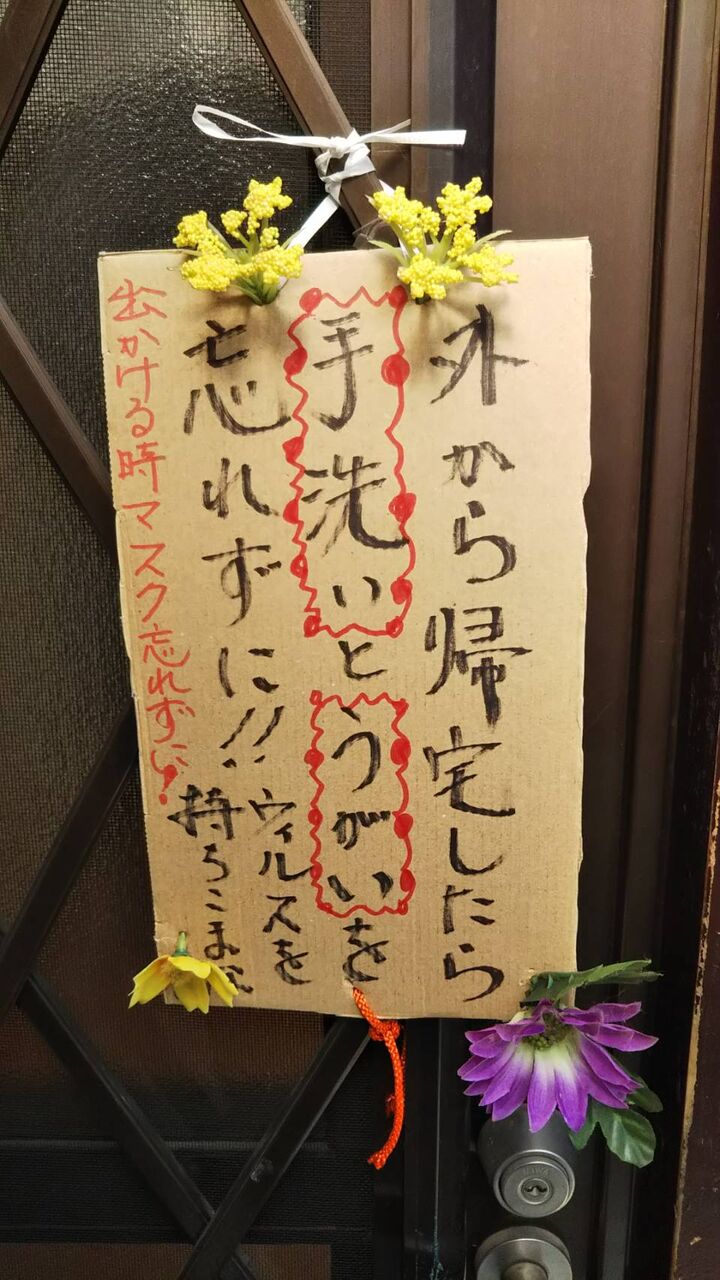 外から帰宅したら
手洗いとうがいを
忘れずに!!
ウィルスを
持ちこま
出かける時マスク忘れずに!